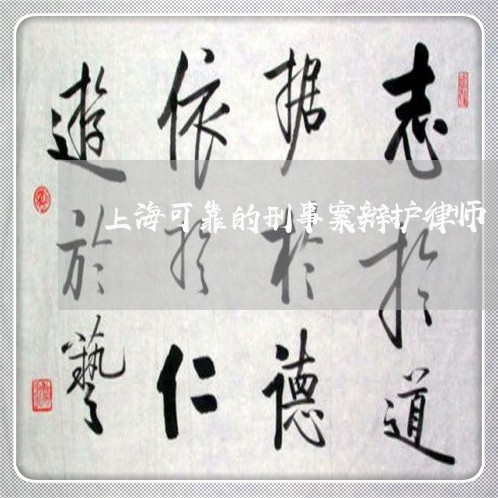 志於道
据於德
依於仁
遊於藝
上海可靠的刑事案辩护律师